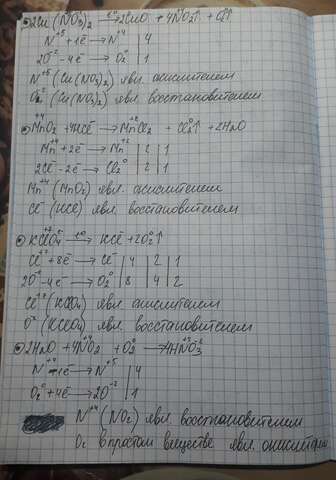 2Cu(NO₃)₂ → 2CuO + 4NO₂↑ + O₂↑
N⁺⁵ + 1ē → N⁺⁴ | 4
2O⁻² - 4ē → O₂⁰ | 1
N⁺⁵ (Cu(NO₃)₂) явл. окислителем
O⁻² (Cu(NO₃)₂) явл. восстановителем
MnO₂ + 4HCl → MnCl₂ + Cl₂↑ + 2H₂O
Mn⁺⁴ + 2ē → Mn⁺² | 2 | 1
2Cl⁻ - 2ē → Cl₂⁰ | 2 | 1
Mn⁺⁴ (MnO₂) явл. окислителем
Cl⁻ (HCl) явл. восстановителем
KClO₄ → KCl + 2O₂↑
Cl⁺⁷ + 8ē → Cl⁻ | 4 | 2 | 1
2O⁻² - 4ē → O₂⁰ | 8 | 4 | 2
Cl⁺⁷ (KClO₄) явл. окислителем
O⁻² (KClO₄) явл. восстановителем
2H₂O + 4NO₂ + O₂ → 4HNO₃
N⁺⁴ - 1ē → N⁺⁵ | 4
O₂⁰ + 4ē → 2O⁻² | 1
N⁺⁴ (NO₂) явл. восстановителем
O₂ в простом веществе явл. окислителем